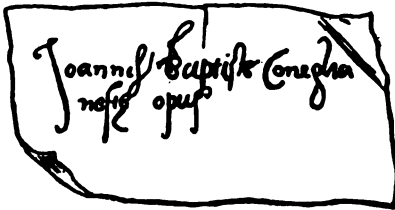 Joannes Baptiste Coneglia
nesis opus